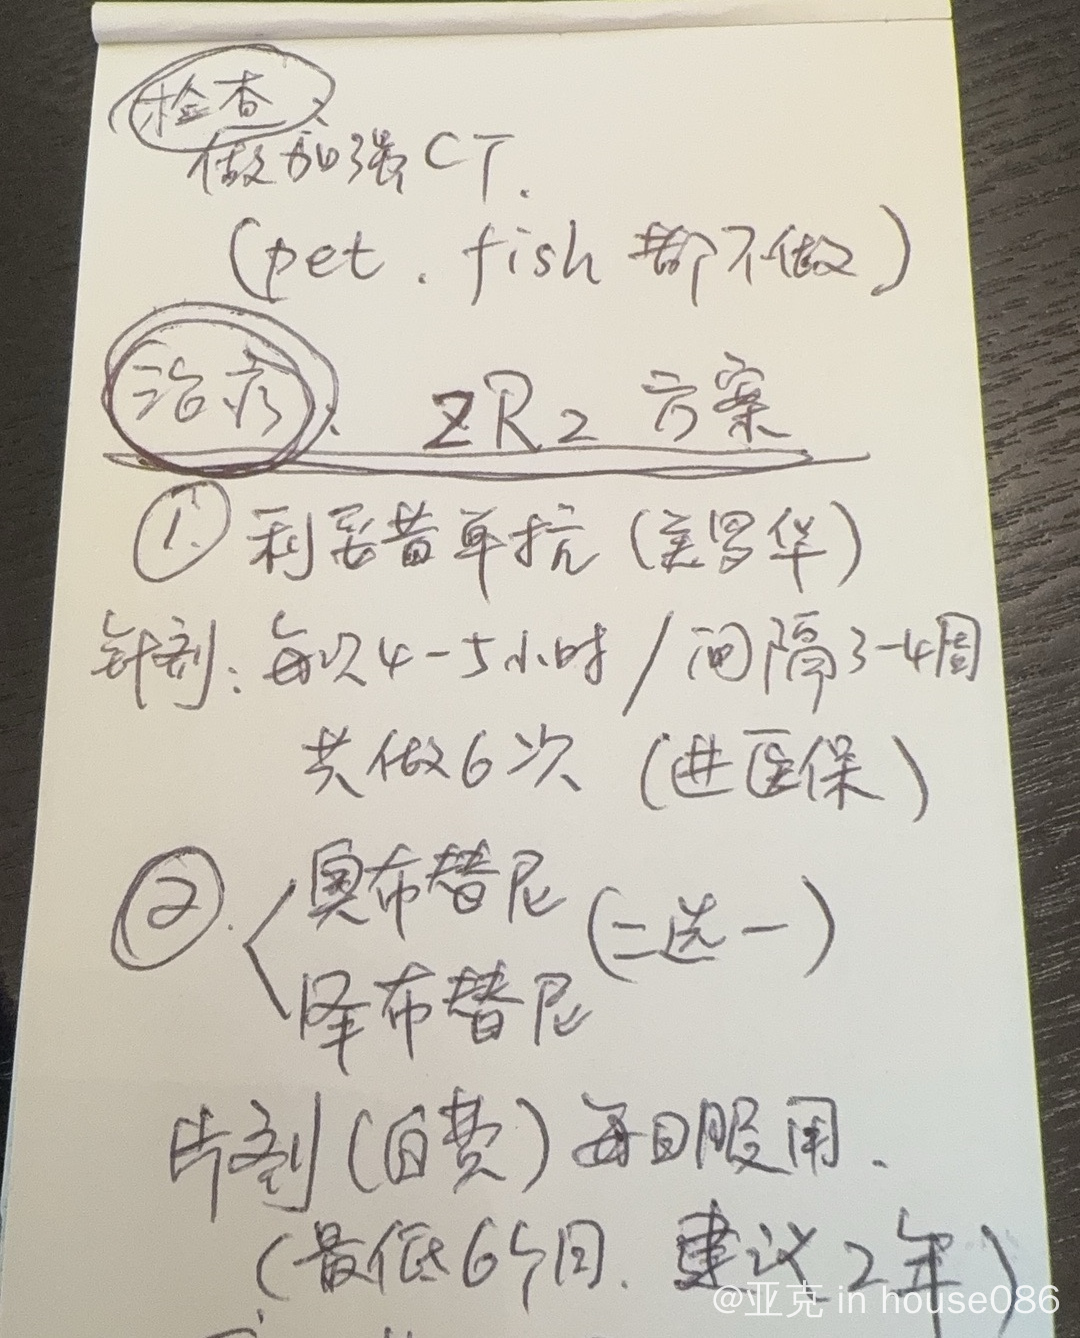 检查
做加强CT.
(pet. fish 都不做)
治疗. ZR2 方案
① 利妥昔单抗 (美罗华)
针剂: 每次4-5小时/间隔3-4周
共做6次 (进医保)
②. 奥布替尼
(二选一)
泽布替尼
片剂 (自费) 每日服用.
(最低6个月. 建议2年)
@亚克 in house086